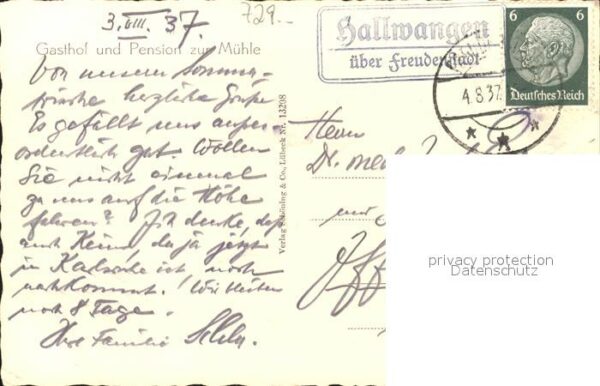 3. VIII. 37.
729.-
Gasthof und Pension zur Mühle
Von unserer Sommer-
frische herzliche Grüße
Es gefällt uns außer-
ordentlich gut. Wollen
Sie nicht einmal
zu uns auf die Höhe
fahren? Ich denke, daß
auch da ja jetzt
in Karlsruhe ist, noch
nachkommt. Wir bleiben
noch 8 Tage.
Ihre Familie
Verlag Schöning & Co., Lübeck Nr. 13298
Hallwangen
über Freudenstadt
4.8.37
6 6
Deutsches Reich
Herrn
Dr. med.
und
privacy protection
Datenschutz